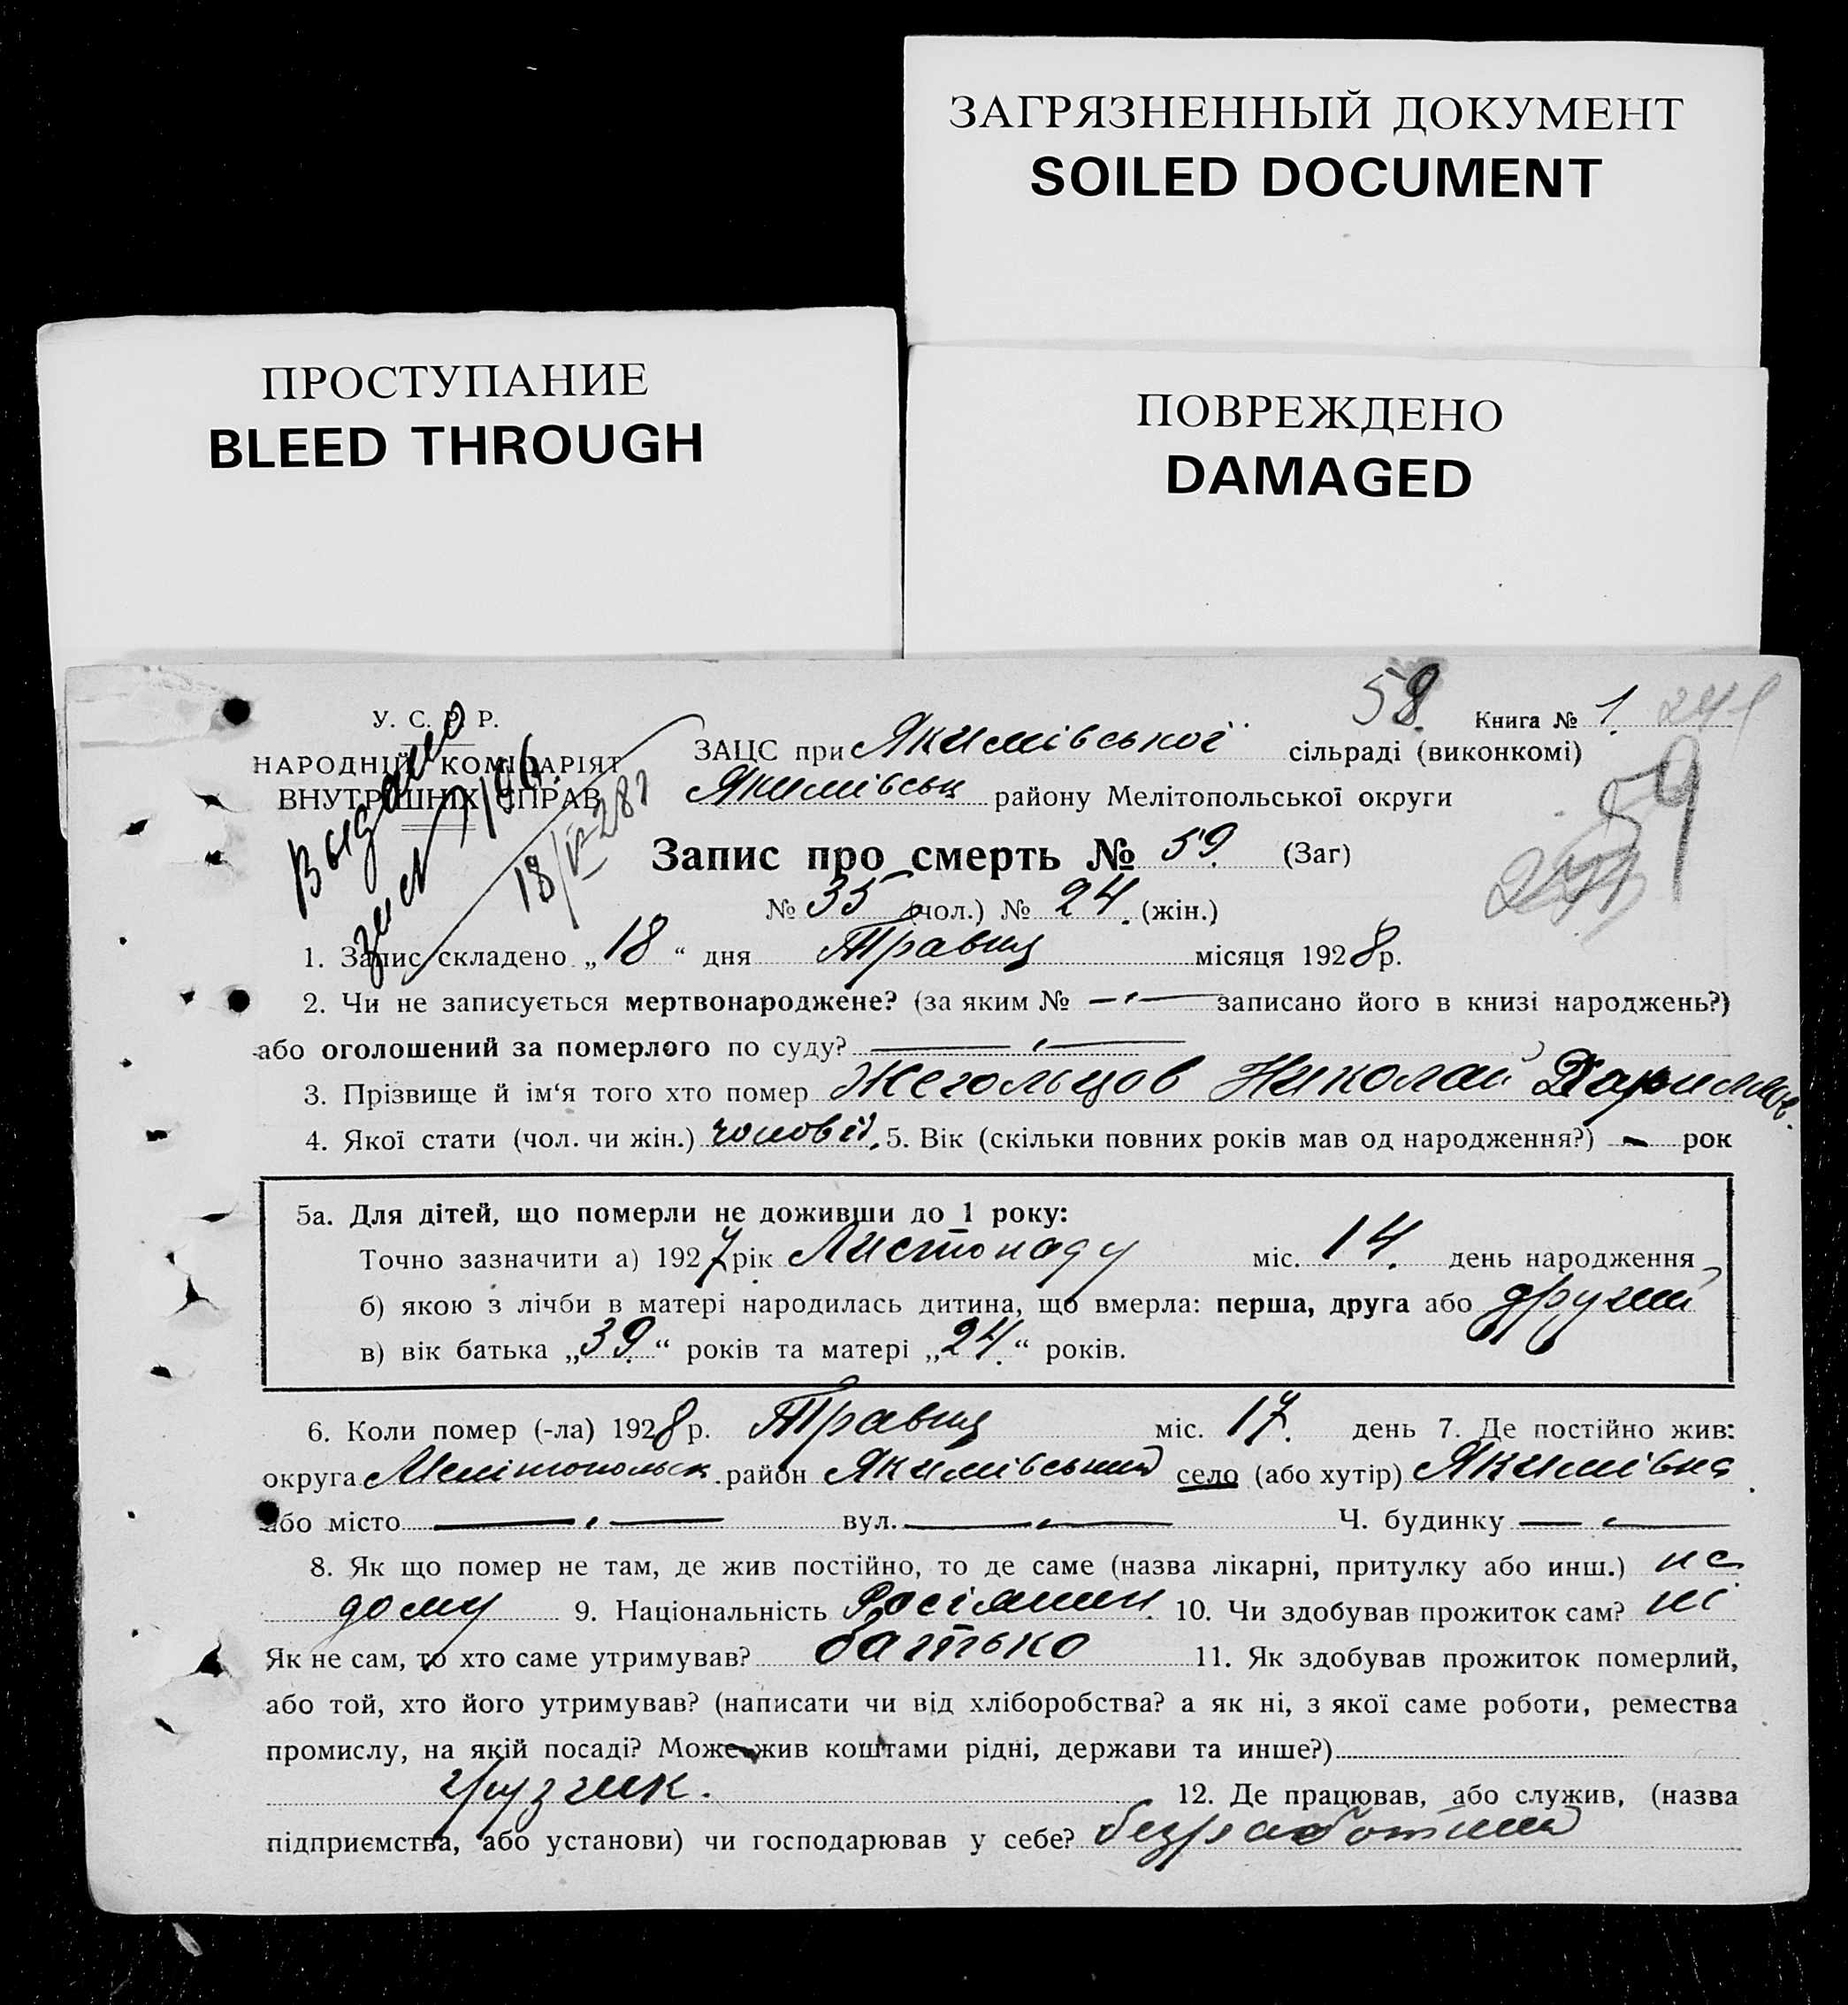 ЗАГРЯЗНЕННЫЙ ДОКУМЕНТ
SOILED DOCUMENT
ПРОСТУПАНИЕ
BLEED THROUGH
ПОВРЕЖДЕНО
DAMAGED
58. Книга № 1. 241
У. С. Р. Р.
НАРОДНІЙ КОМІСАРІЯТ
ВНУТРІШНІХ СПРАВ
Выдано
18/V-28
ЗАЦС при Якимівської сільраді (виконкомі)
Якимівськ району Мелітопольської округи
59
Запис про смерть № 59. (Заг)
№ 35 (чол.) № 24. (жін.)
1. Запис складено „18“ дня Травня місяця 1928 р.
2. Чи не записується мертвонароджене? (за яким № —„— записано його в книзі народжень?)
або оголошений за померлого по суду? —„—
3. Прізвище й ім‘я того хто помер Жегольцов Николай
4. Якої стати (чол. чи жін.) 5. Вік (скільки повних років мав од народження?) – рок
5а. Для дітей, що померли не доживши до 1 року:
Точно зазначити а) 1927 рік Листопаду міс. 14. день народження
б) якою з лічби в матері народилась дитина, що вмерла: перша, друга або другий
в) вік батька „39.“ років та матері „24.“ років.
6. Коли помер (-ла) 1928 р. Травня міс. 17. день 7. Де постійно жив:
округа Мелітопольск. район Якимівський село (або хутір) Якимівка
або місто —„— вул. —„— Ч. будинку —„—
8. Як що помер не там, де жив постійно, то де саме (назва лікарні, притулку або инш.) на
дому 9. Національність Росіянин 10. Чи здобував прожиток сам? ні
Як не сам, то хто саме утримував? батько 11. Як здобував прожиток померлий,
або той, хто його утримував? (написати чи від хліборобства? а як ні, з якої саме роботи, ремества
промислу, на якій посаді? Може жив коштами рідні, держави та инше?)
грузчик. 12. Де працював, або служив, (назва
підприємства, або установи) чи господарював у себе? безработний